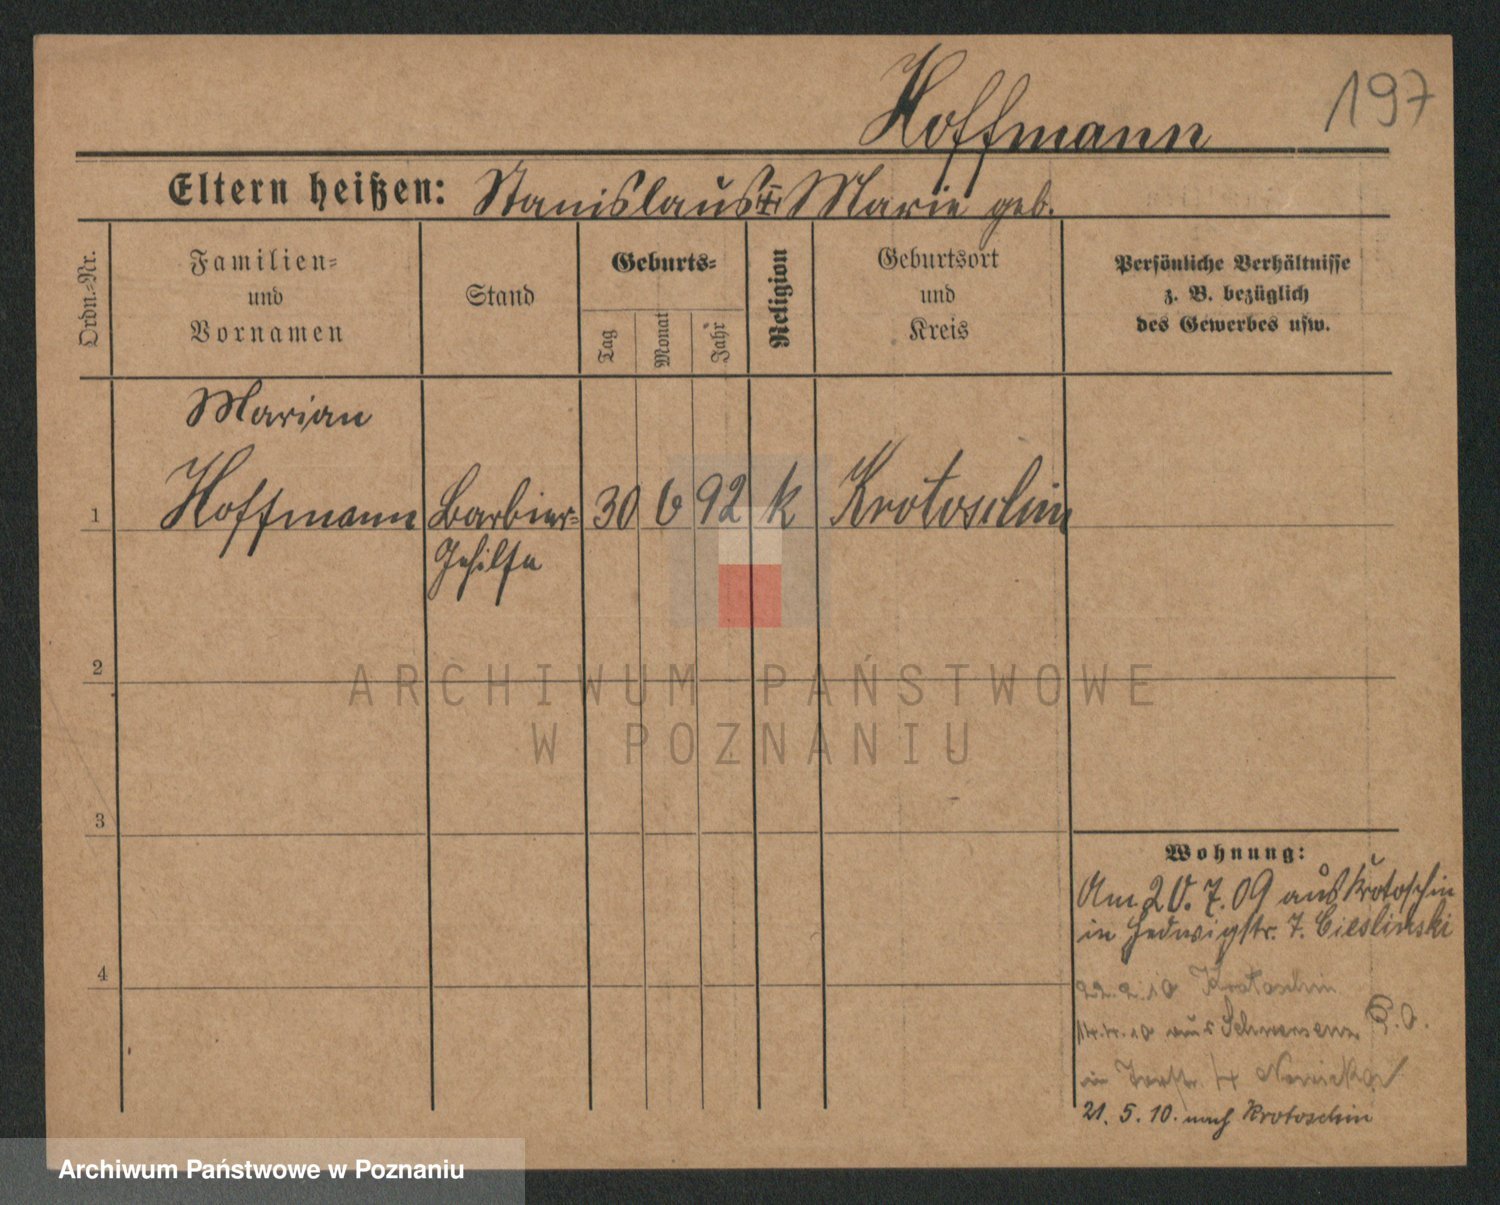 Hoffmann
197
Eltern heißen: Stanislaus Marie geb.
Ordn.-Nr.
Familien-
und
Vornamen
Stand
Geburts-
Tag
Monat
Jahr
Religion
Geburtsort
und
Kreis
Persönliche Verhältnisse
z. B. bezüglich
des Gewerbes usw.
Marian
1 Hoffmann Barbier- 30 6 92 k Krotoschin
Gehilfe
2
3
4
Wohnung:
Am 20.7.09 aus Krotoschin
in Hedwigstr. 7. Cieslinski
22.2.10 Krotoschin
14.4.10 aus Schwersenz
in
21.5.10. nach Krotoschin
ARCHIWUM PAŃSTWOWE
W POZNANIU
Archiwum Państwowe w Poznaniu